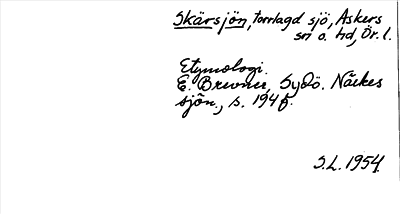 Skärsjön, torrlagd sjö, Askers
sn o. hd, Ör. l.
Etymologi.
E. Brevner, Sydö. Närkes
sjön., s. 194 f.
S.L. 1954